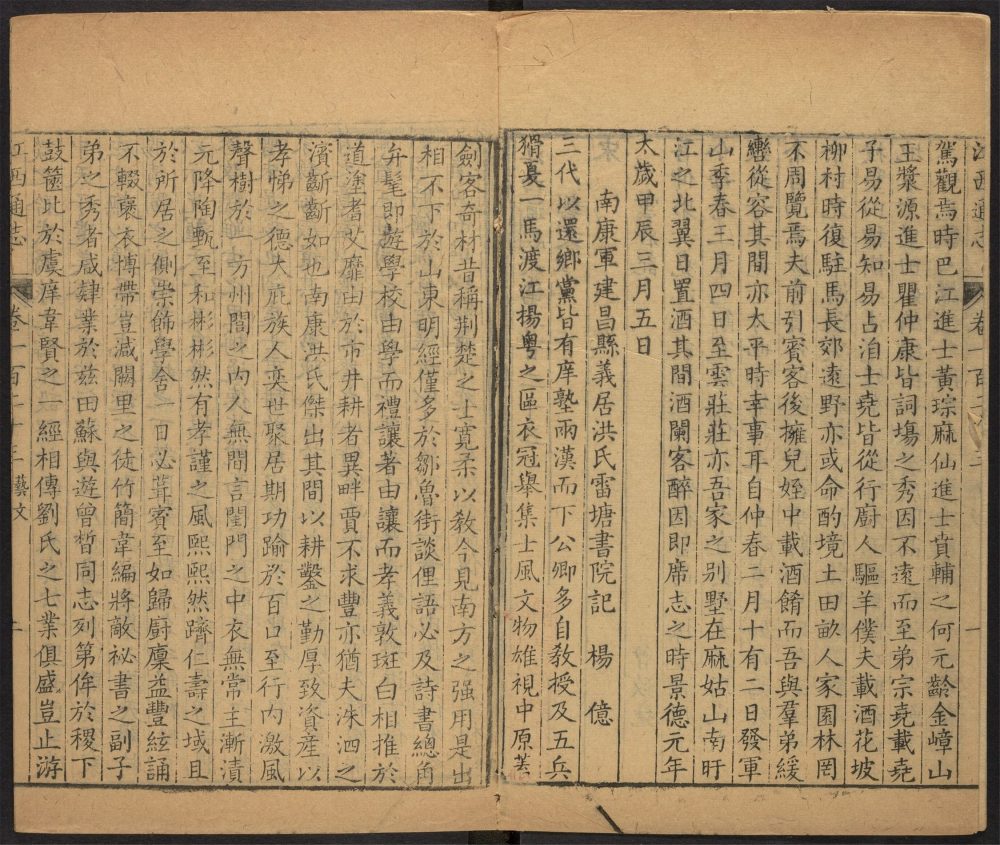 江西通志 卷一百二十三 一
駕觀焉時巴江進士黃琮麻仙進士賁輔之何元齡金嶂山
王漿源進士瞿仲康皆詞塲之秀因不遠而至弟宗堯載堯
子易從易知易占洎士堯皆從行廚人驅羊僕夫載酒花坡
柳村時復駐馬長郊遠野亦或命酌境土田畝人家園林罔
不周覽焉夫前引賓客後擁兒姪中載酒餚而吾與羣弟緩
轡從容其間亦太平時幸事耳自仲春二月十有二日發軍
山季春三月四日至雲莊莊亦吾家之别墅在麻姑山南旴
江之北翼日置酒其間酒闌客醉因即席志之時景德元年
太歲甲辰三月五日
南康軍建昌縣義居洪氏雷塘書院記 楊億
三代以還鄉黨皆有庠塾兩漢而下公卿多自敎授及五兵
猾夏一馬渡江揚粤之區衣冠舉集士風文物雄視中原葢
劍客奇材昔稱荆楚之士寛柔以敎今見南方之强用是出
相不下於山東明經僅多於鄒魯街談俚語必及詩書總角
弁髦即遊學校由學而禮讓著由讓而孝義敦斑白相推於
道塗耆艾靡由於市井耕者異畔賈不求豐亦猶夫洙泗之
濱斷斷如也南康洪氏傑出其間以耕鑿之勤厚致資產以
孝悌之德大庇族人奕世聚居期功踰於百口至行内激風
聲樹於一方州閭之内人無間言閨門之中衣無常主漸漬
元降陶甄至和彬彬然有孝謹之風熙熙然躋仁壽之域且
於所居之側崇飾學舍一日必葺賓至如歸廚廩益豐絃誦
不輟裒衣博帶豈減闕里之徒竹簡韋編將敵祕書之副子
弟之秀者咸肄業於兹田蘇與遊曾晳同志列第侔於稷下
鼓篋比於虞庠韋賢之一經相傳劉氏之七業俱盛豈止游
江西通志 卷一百二十三 藝文 一